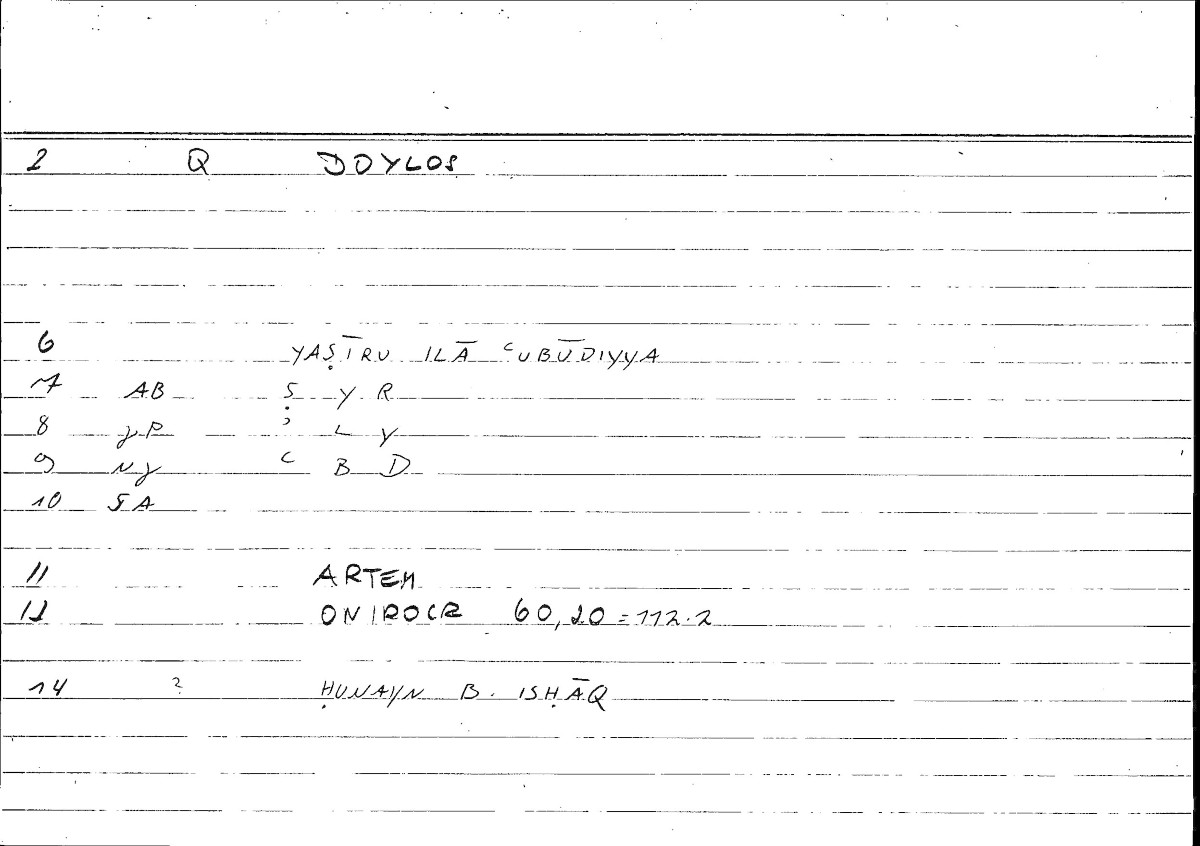 2 Q DOYLOS
6 YAṢĪRU ILĀ ʿUBŪDIYYA
7 AB Ṣ Y R
8 γP ʾ L Y
9 Nγ ʿ B D
10 SA
11 ARTEM
12 ONIROCR 60,20 = 112.2
14 ? ḤUNAYN B. ISḤĀQ